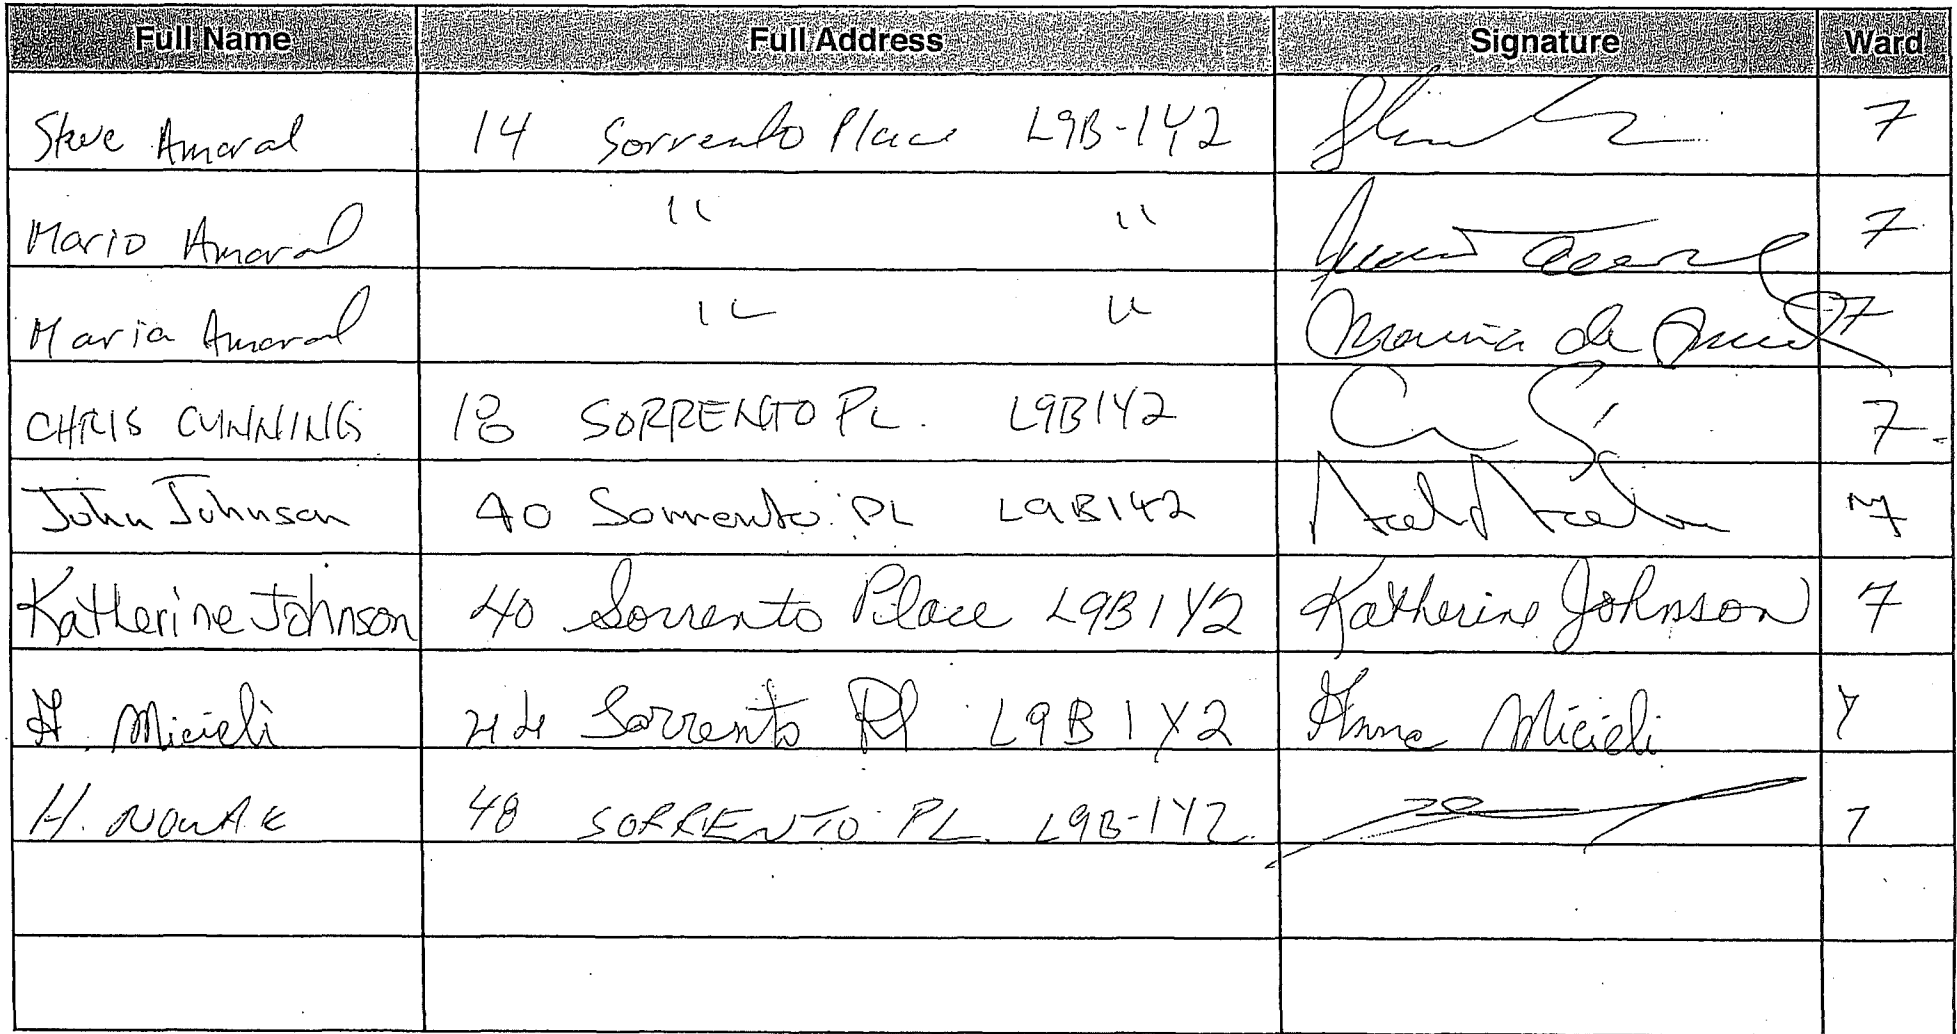 Full Name Full Address Signature Ward
Steve Amaral 14 Sorrento Place L9B-1Y2 7
Mario Amaral " " 7
Maria Amaral " " Maria de 7
CHRIS CUNNING 18 SORRENTO PL. L9B1Y2 7
John Johnson 40 Sorrento PL L9B1Y2 7
Katherine Johnson 40 Sorrento Place L9B1Y2 Katherine Johnson 7
A. Micieli 44 Sorrento Pl L9B1Y2 Anna Micieli 7
H. NOWAK 48 SORRENTO PL. L9B-1Y2 7